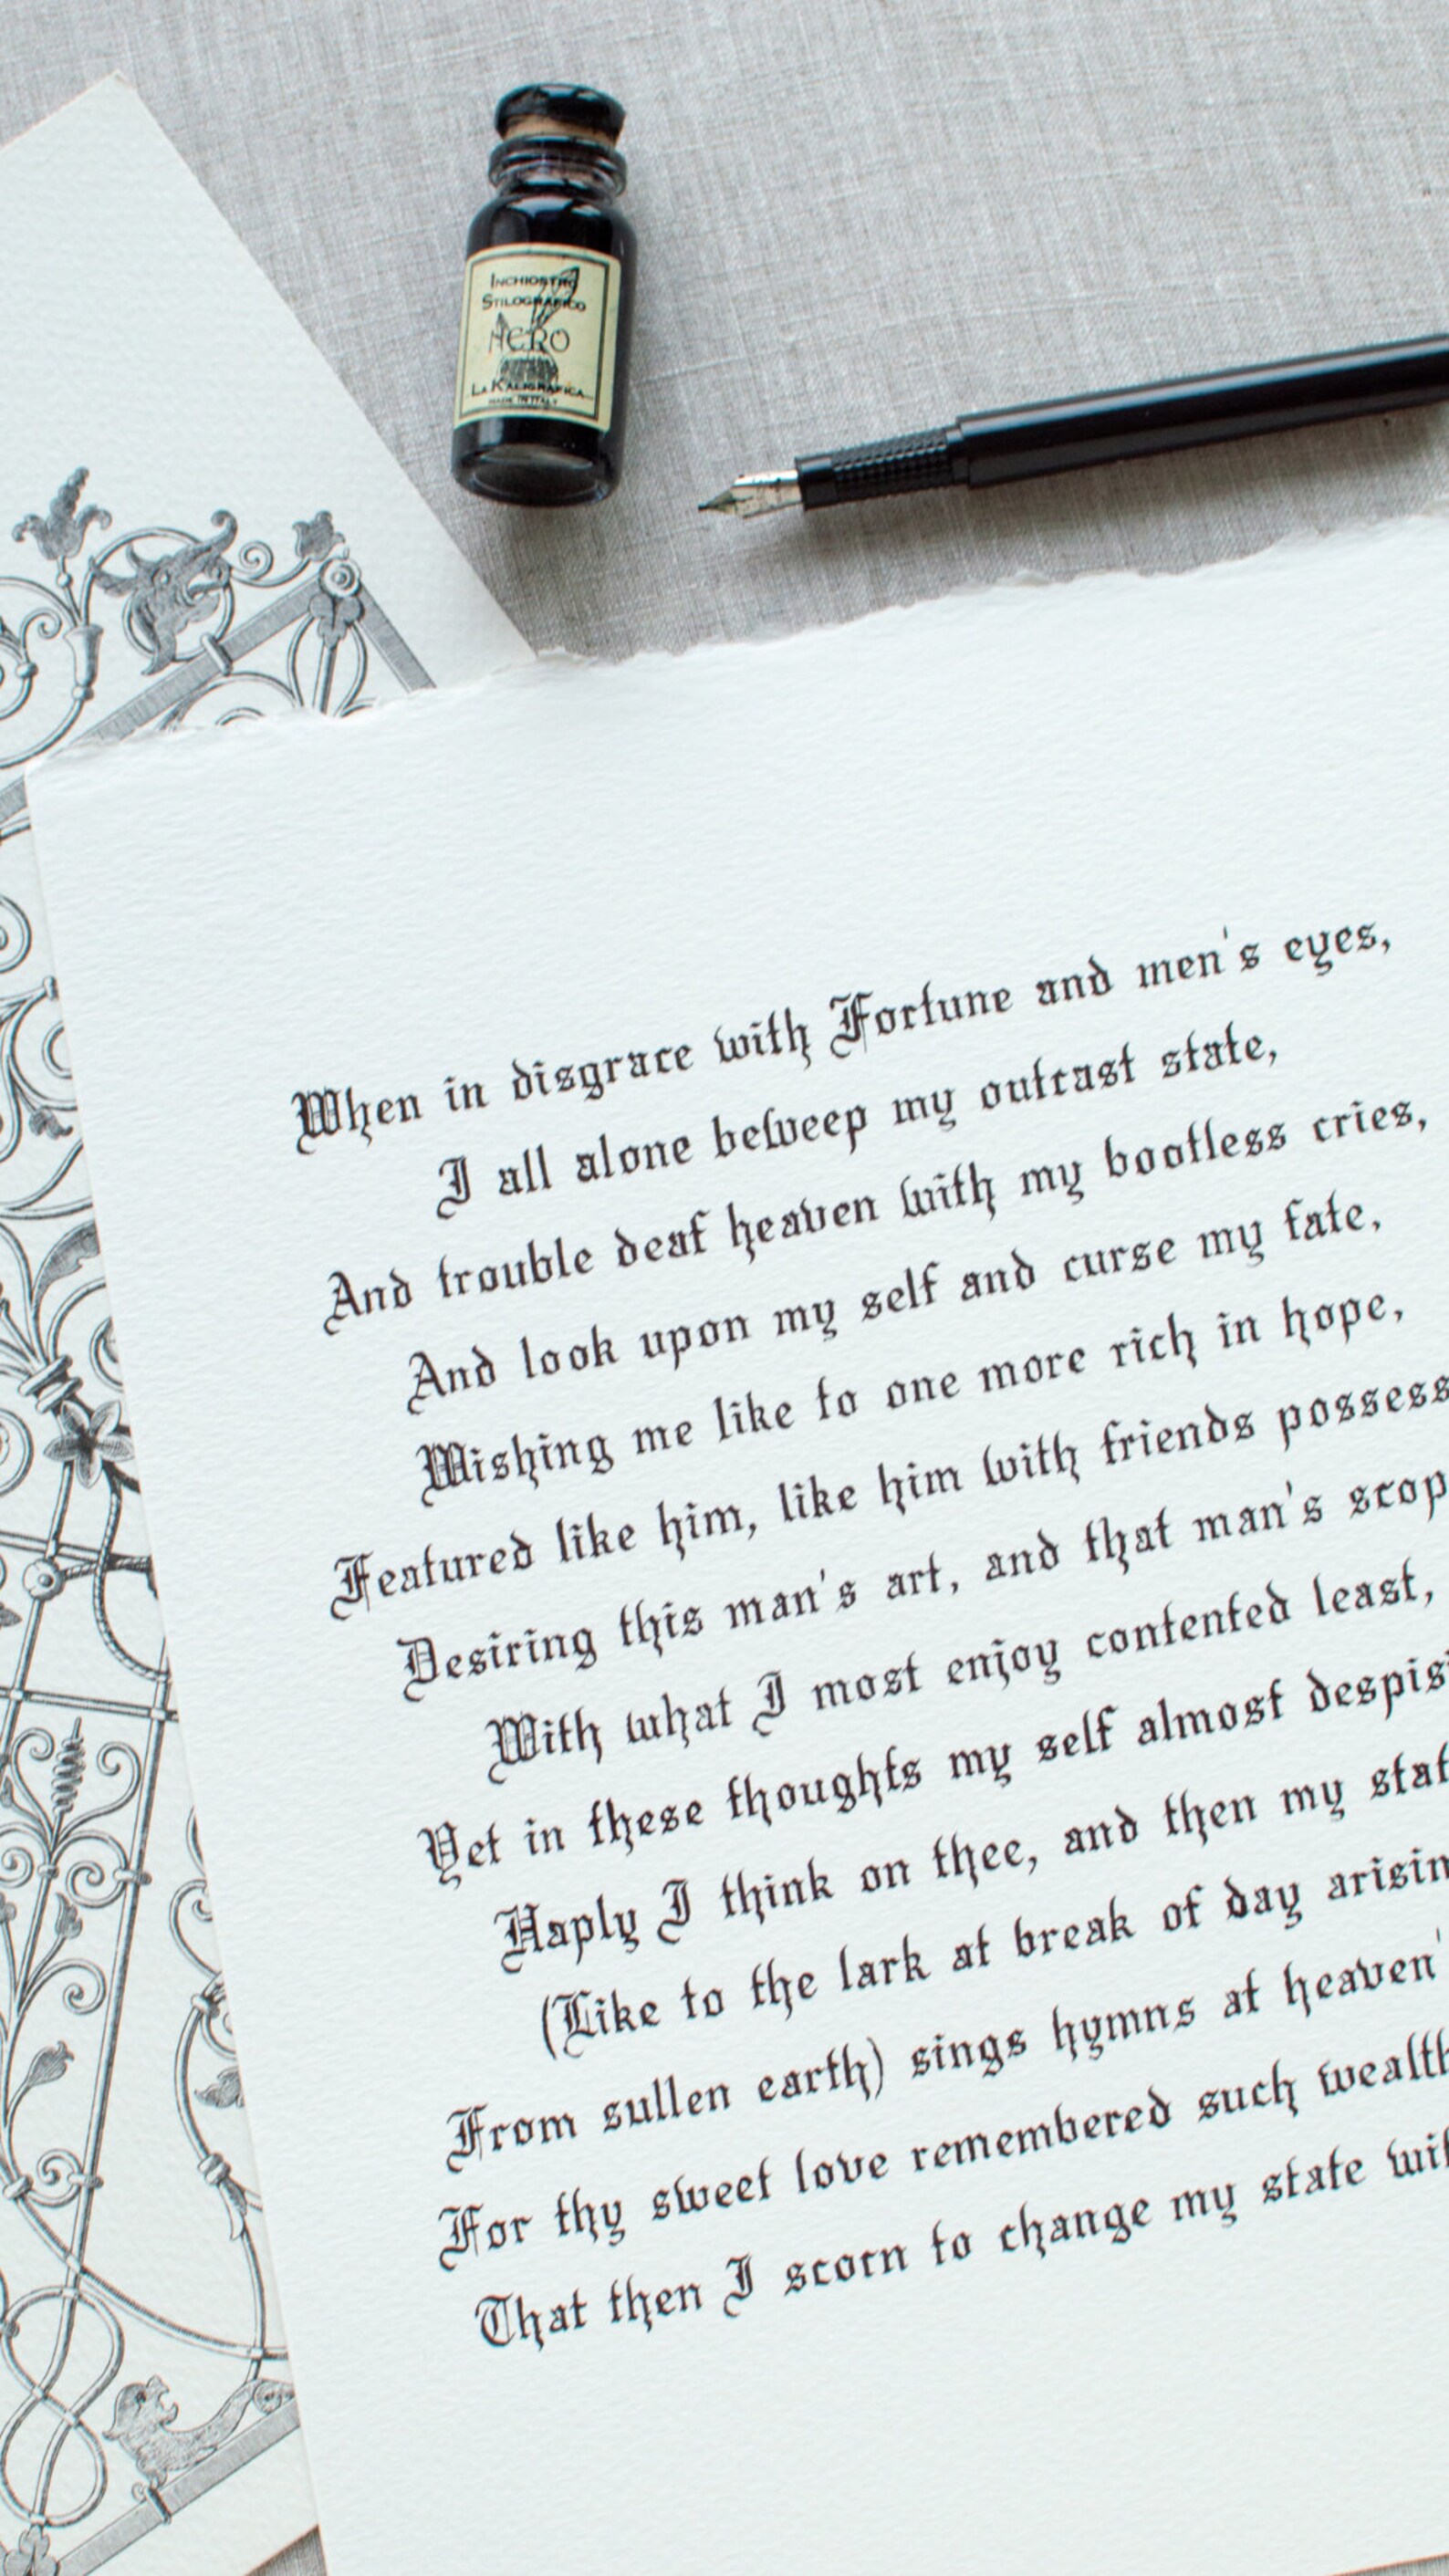 INCHIOSTRO
STILOGRAFICO
NERO
LA KALIGRAFICA
MADE IN ITALY
When in disgrace with Fortune and men's eyes,
I all alone beweep my outcast state,
And trouble deaf heaven with my bootless cries,
And look upon my self and curse my fate,
Wishing me like to one more rich in hope,
Featured like him, like him with friends possess
Desiring this man's art, and that man's scop
With what I most enjoy contented least,
Yet in these thoughts my self almost despis
Haply I think on thee, and then my stat
(Like to the lark at break of day arisin
From sullen earth) sings hymns at heaven'
For thy sweet love remembered such wealth
That then I scorn to change my state wit